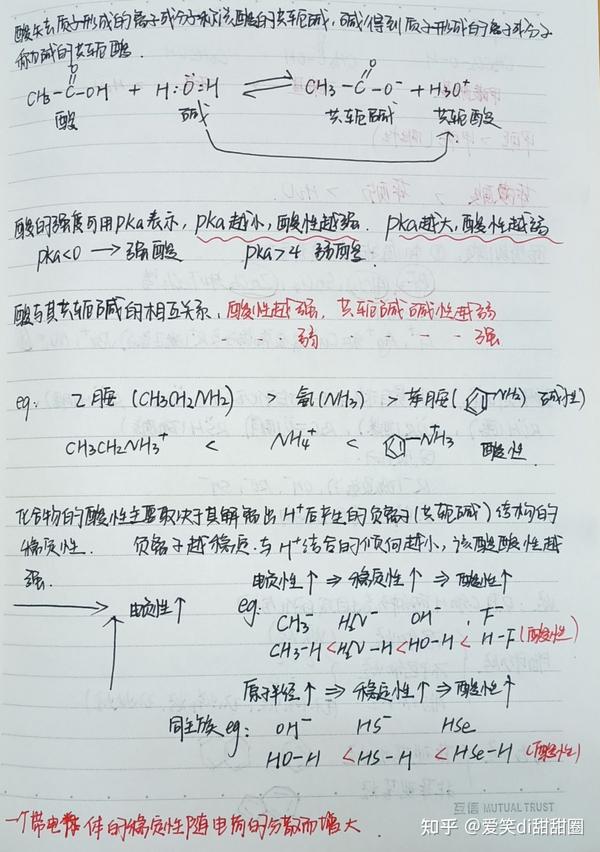 酸失去质子形成的离子或分子称该酸的共轭碱,碱得到质子形成的离子或分子
称碱的共轭酸.
CH3-C-OH + H:O:H ⇌ CH3-C-O⁻ + H3O⁺
O O
酸 碱 共轭碱 共轭酸
酸的强度可用pKa表示, pKa越小,酸性越强. pKa越大,酸性越弱
pka<0 → 强酸 pka>4 弱酸.
酸与其共轭碱的相互关系, 酸性越强, 共轭碱碱性越弱
- - 弱 - - 强
eg: 乙胺 (CH3CH2NH2) > 氨(NH3) > 苯胺( NH2) 碱性
CH3CH2NH3⁺ < NH4⁺ < N⁺H3 酸性
化合物的酸性主要取决于其解离出H⁺后产生的负离子(共轭碱)结构的
稳定性. 负离子越稳定.与H⁺结合的倾向越小,该酸酸性越
强.
电负性↑ ⇒ 稳定性↑ ⇒ 酸性↑
→ 电负性↑ eg: CH3⁻ H2N⁻ OH⁻ F⁻
CH3-H < H2N-H < HO-H < H-F (酸性)
原子半径↑ ⇒ 稳定性↑ ⇒ 酸性↑
同主族eg: OH⁻ HS⁻ HSe
HO-H < HS-H < HSe-H (酸性)
互信 MUTUAL TRUST
一个带电体的稳定性随电荷的分散而增大.
知乎 @爱笑di甜甜圈